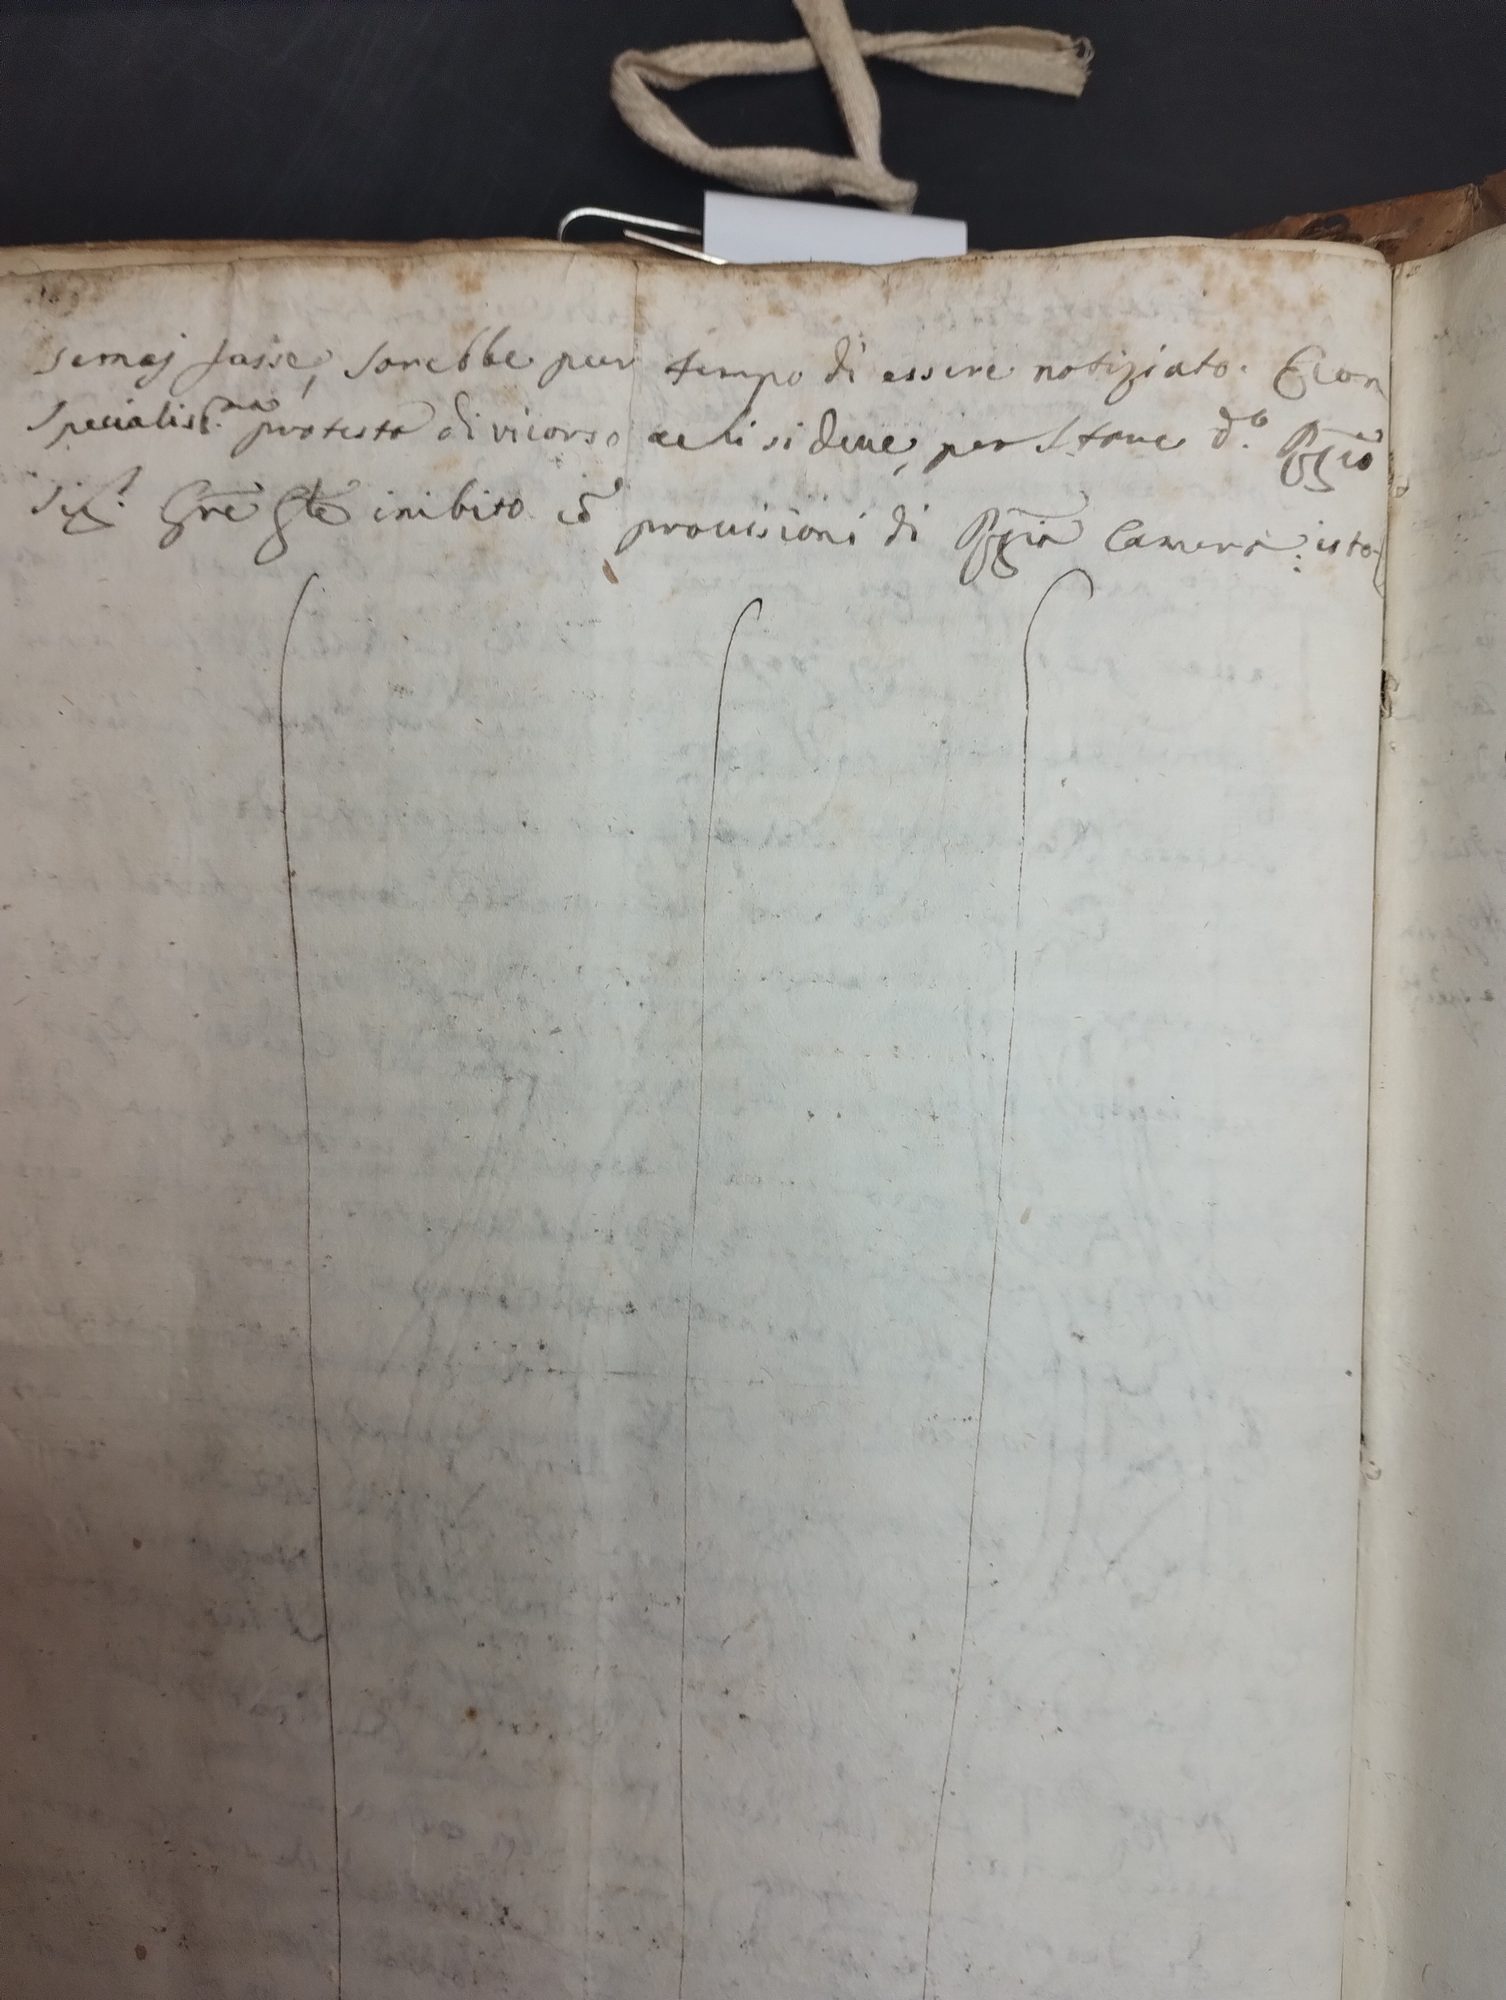 semaj fusse, sarebbe pur tempo di essere notiziato. E con
specialiss.ma protesta di ricorso a chi si deve, per stare d.o Reggio
Sig.r Gñe inibito cõ provisioni di Reggia Camera: ista